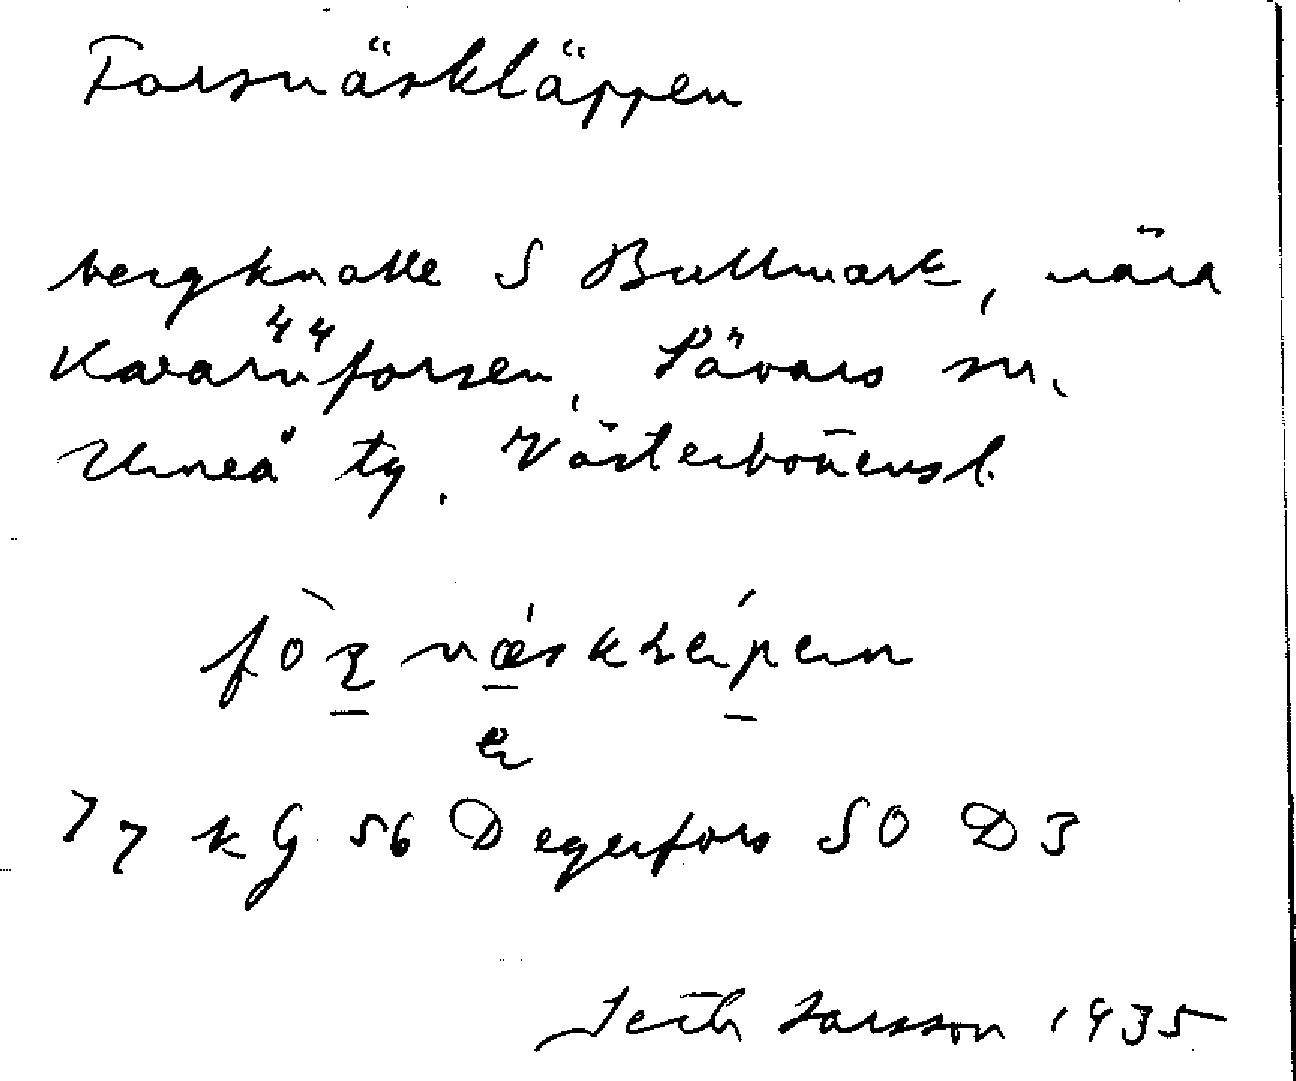 Forsnäskläppen
bergknalle S Bullmark, nära
Kvarnforsen, Sävars sn.
Umeå tg. Västerbottensl.
77 kG 56 Degerfors SO D3
Seth Larsson 1935